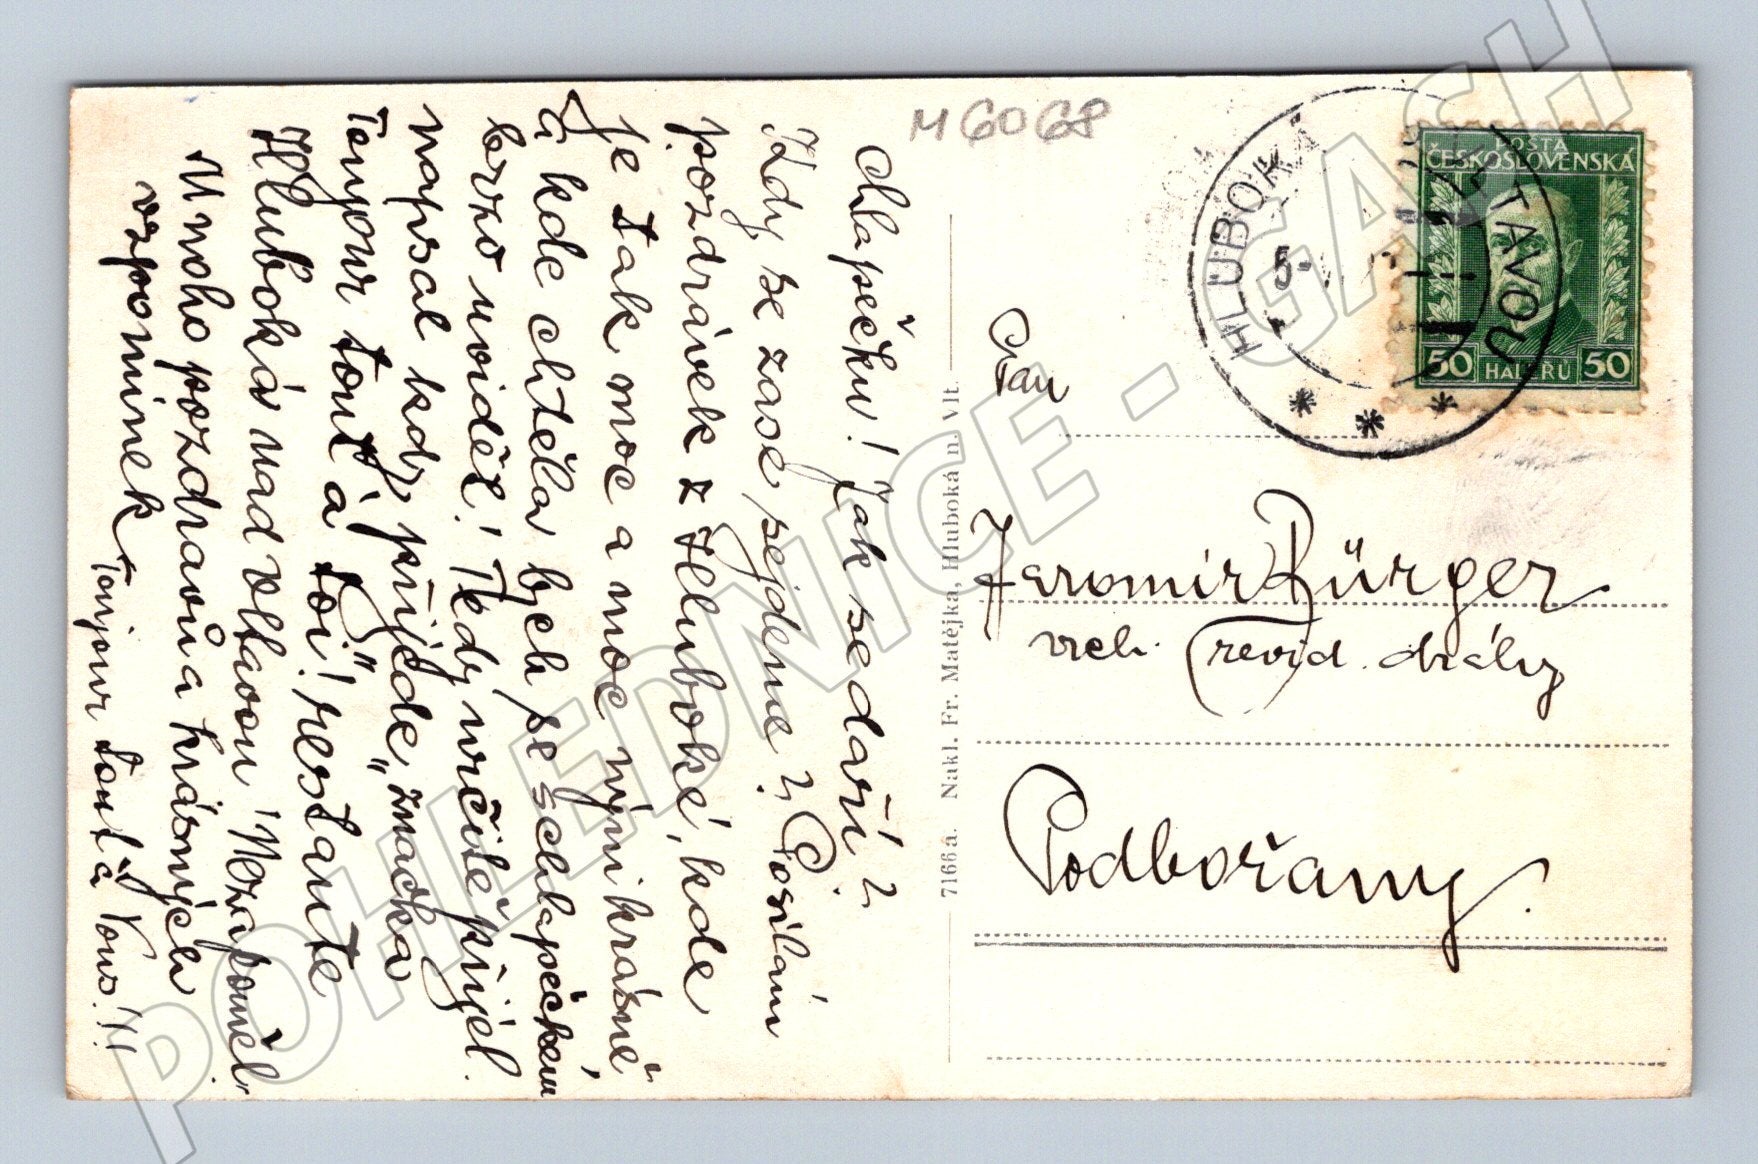 M 6068
Chlapečku! Jak se daří?
Kdy se zase sejdeme? Posílám
pozdrávek z Hluboké, kde
je tak moc a moc nými krásně
a kde chtěla bych se schlapečkem
brzo uvidět! Tedy určitě přijel.
napsal kdy přijede „značka
Tonjour tout á toi!" restante
Hluboká nad Vltavou! Nezapoměl
Mnoho pozdravů a krásných
vzpomínek
Tonjour tout á Vous!!!
7166a. Nakl. Fr. Matějka, Hluboká n. Vlt.
HLUBOKÁ VLTAVOU
5
* * *
POŠTA
ČESKOSLOVENSKÁ
50 HALÉŘŮ 50
Pan
Jaromír Bürger
vrch. revid. dráhy
Podbořany.
POHLEDNICE - GASH